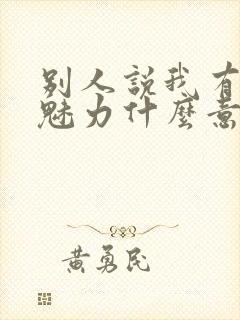 别人說我有
魅力什麼意
黃勇民